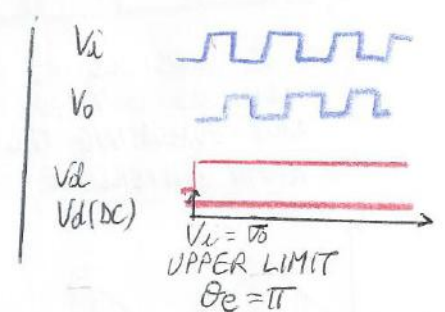 Vi
Vo
Vd
Vd(DC)
Vi = Vo
UPPER LIMIT
θe = π